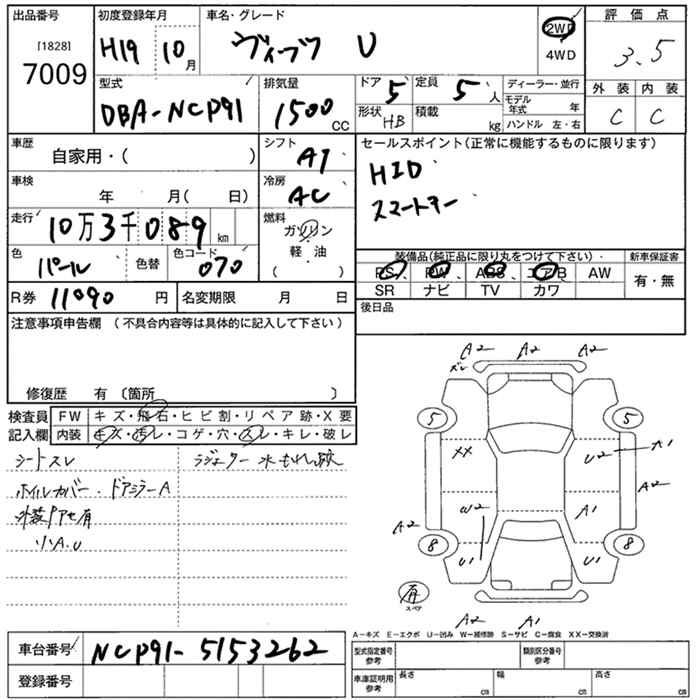 出品番号 初度登録年月 車名・グレード 評価点
[1828] H19 10月 ヴィッツ U 2WD 3.5
7009 4WD
型式 排気量 ドア 5 定員 5人 ディーラー・並行 外装 内装
DBA-NCP91 1500CC 形状 HB 積載 kg モデル年式 年 C C
ハンドル 左・右
車歴 シフト セールスポイント(正常に機能するものに限ります)
自家用・( ) AT HID
車検 冷房 スマートキー
年 月( 日) AC
走行 10万3千089km 燃料
ガソリン
軽・油
( )
色 パール 色替 色コード 070 装備品(純正品に限り丸をつけて下さい) 新車保証書
PS PW ABS エアB AW 有・無
R券 11090円 名変期限 月 日 SR ナビ TV カワ
注意事項申告欄 (不具合内容等は具体的に記入して下さい) 後日品
修復歴 有 〔箇所 〕
検査員 FW キズ・飛石・ヒビ割・リペア跡・X要
記入欄 内装 キズ・汚レ・コゲ・穴・スレ・キレ・破レ
シートスレ ラジエター水もれ跡
ホイルカバー・ドアミラーA
外装
A2 A2 A2
5 5
XX U2 A1
A2
A2 W2 A1
8 U1 U1 8
有
スペア
A2 A1
A-キズ E-エクボ U-凹み W-補修跡 S-サビ C-腐食 XX-交換済
車台番号 NCP91-5153262 型式指定番号 参考 類別区分番号 参考
登録番号 車庫証明用 参考 長さ cm 幅 cm 高さ cm